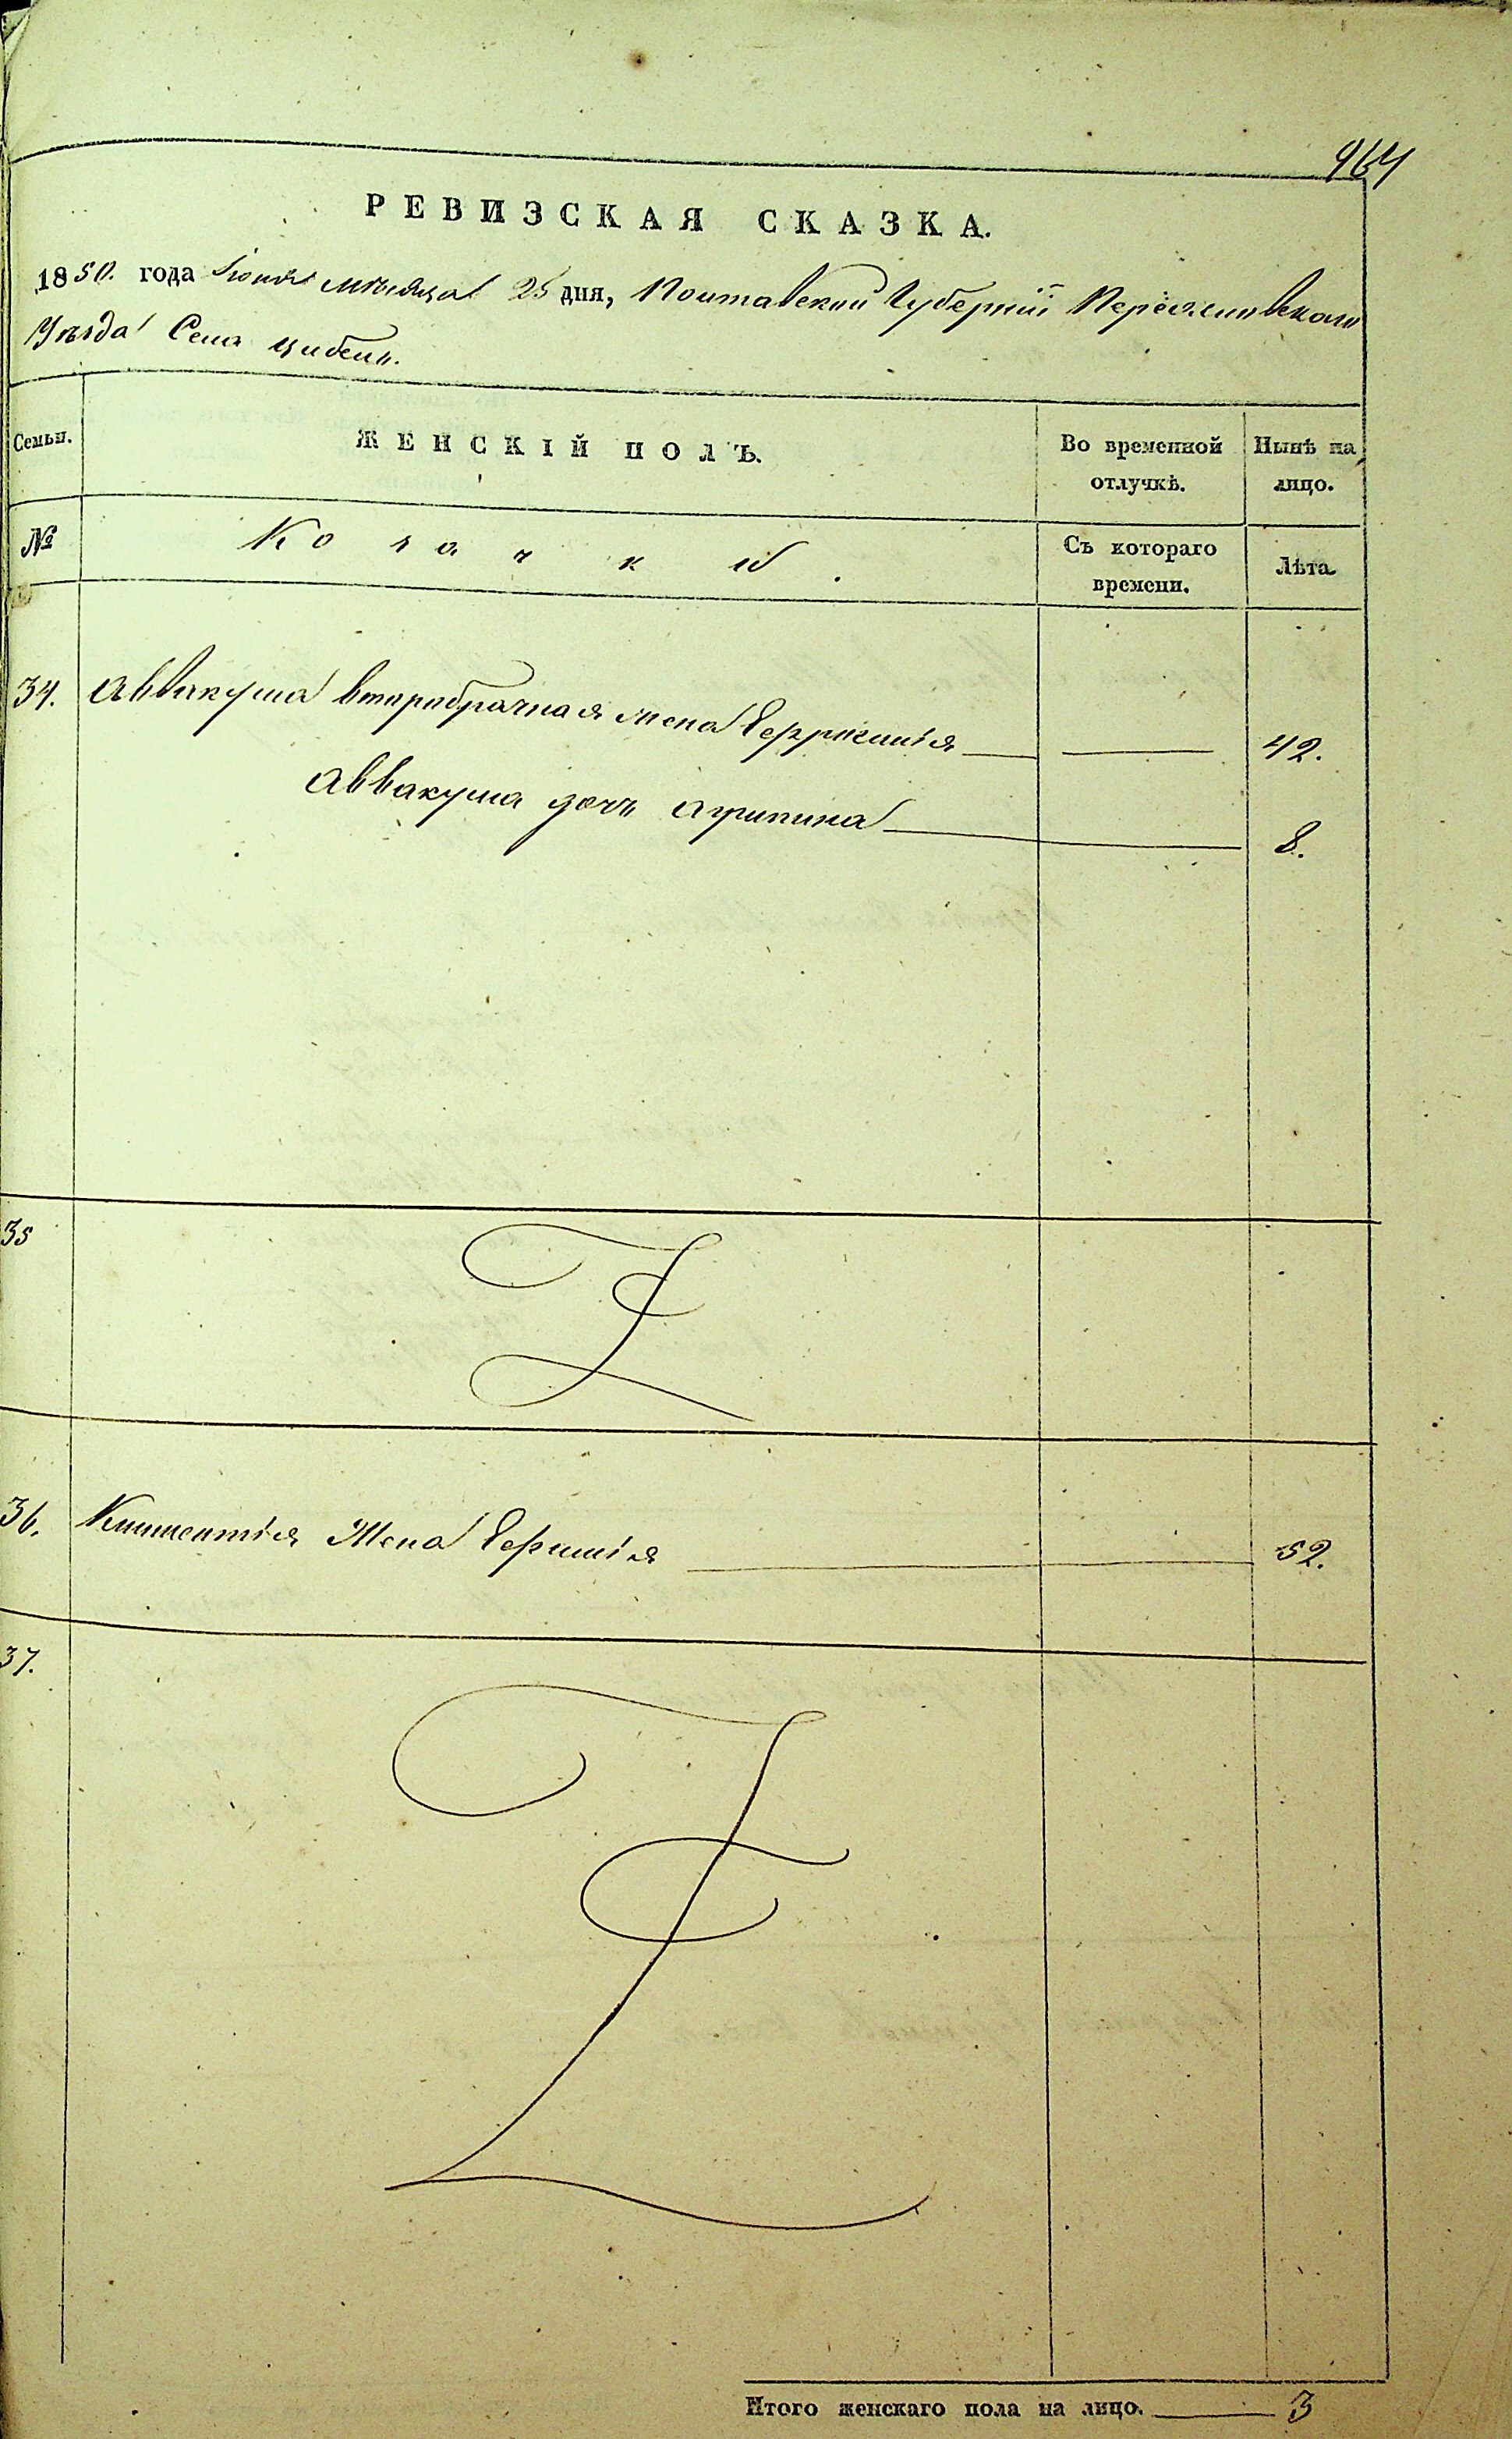 964
РЕВИЗСКАЯ СКАЗКА.
1850. года Іюня мѣсяца 25 дня, Полтавской Губерніи Переяславскаго
Уѣзда Села Цибель.
Семьи. ЖЕНСКІЙ ПОЛЪ. Во временной отлучкѣ. Нынѣ на лицо.
№ Козачки. Съ котораго времени. Лѣта
34. Аввакума второбрачная жена 42.
Аввакума дочь Агрипина 8.
35
36. Климентія Жена 52.
37.
Итого женскаго пола на лицо. 3